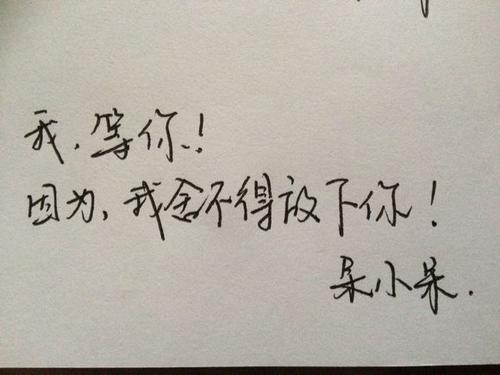 我，等你！
因为，我舍不得放下你！
呆小呆.